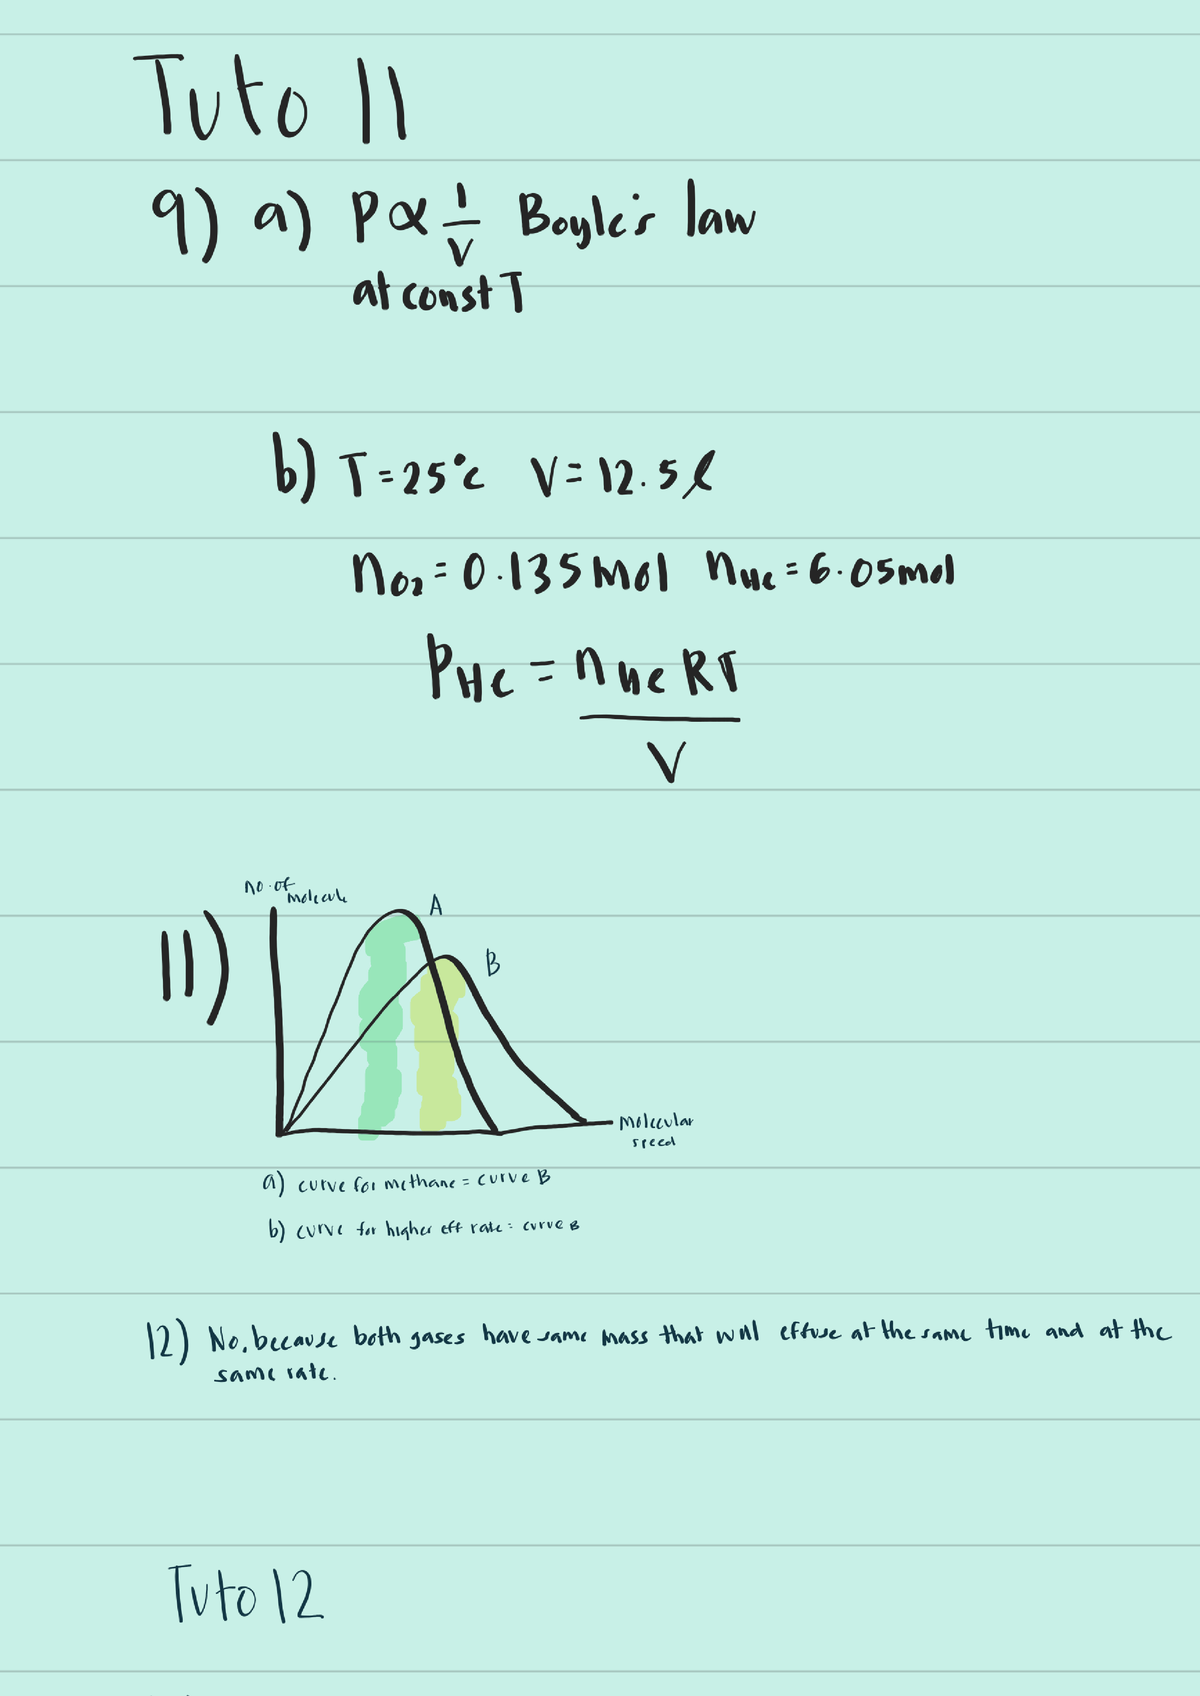 Tuto 11
9) a) P ∝ 1/V Boyle's law
at const T
b) T = 25°c V = 12.5 ℓ
nO2 = 0.135 mol nHe = 6.05 mol
PHe = nHe RT
V
no. of
molecule
A
11)
B
Molecular
speed
a) curve for methane = curve B
b) curve for higher eff rate = curve B
12) No, because both gases have same mass that will effuse at the same time and at the
same rate.
Tuto 12